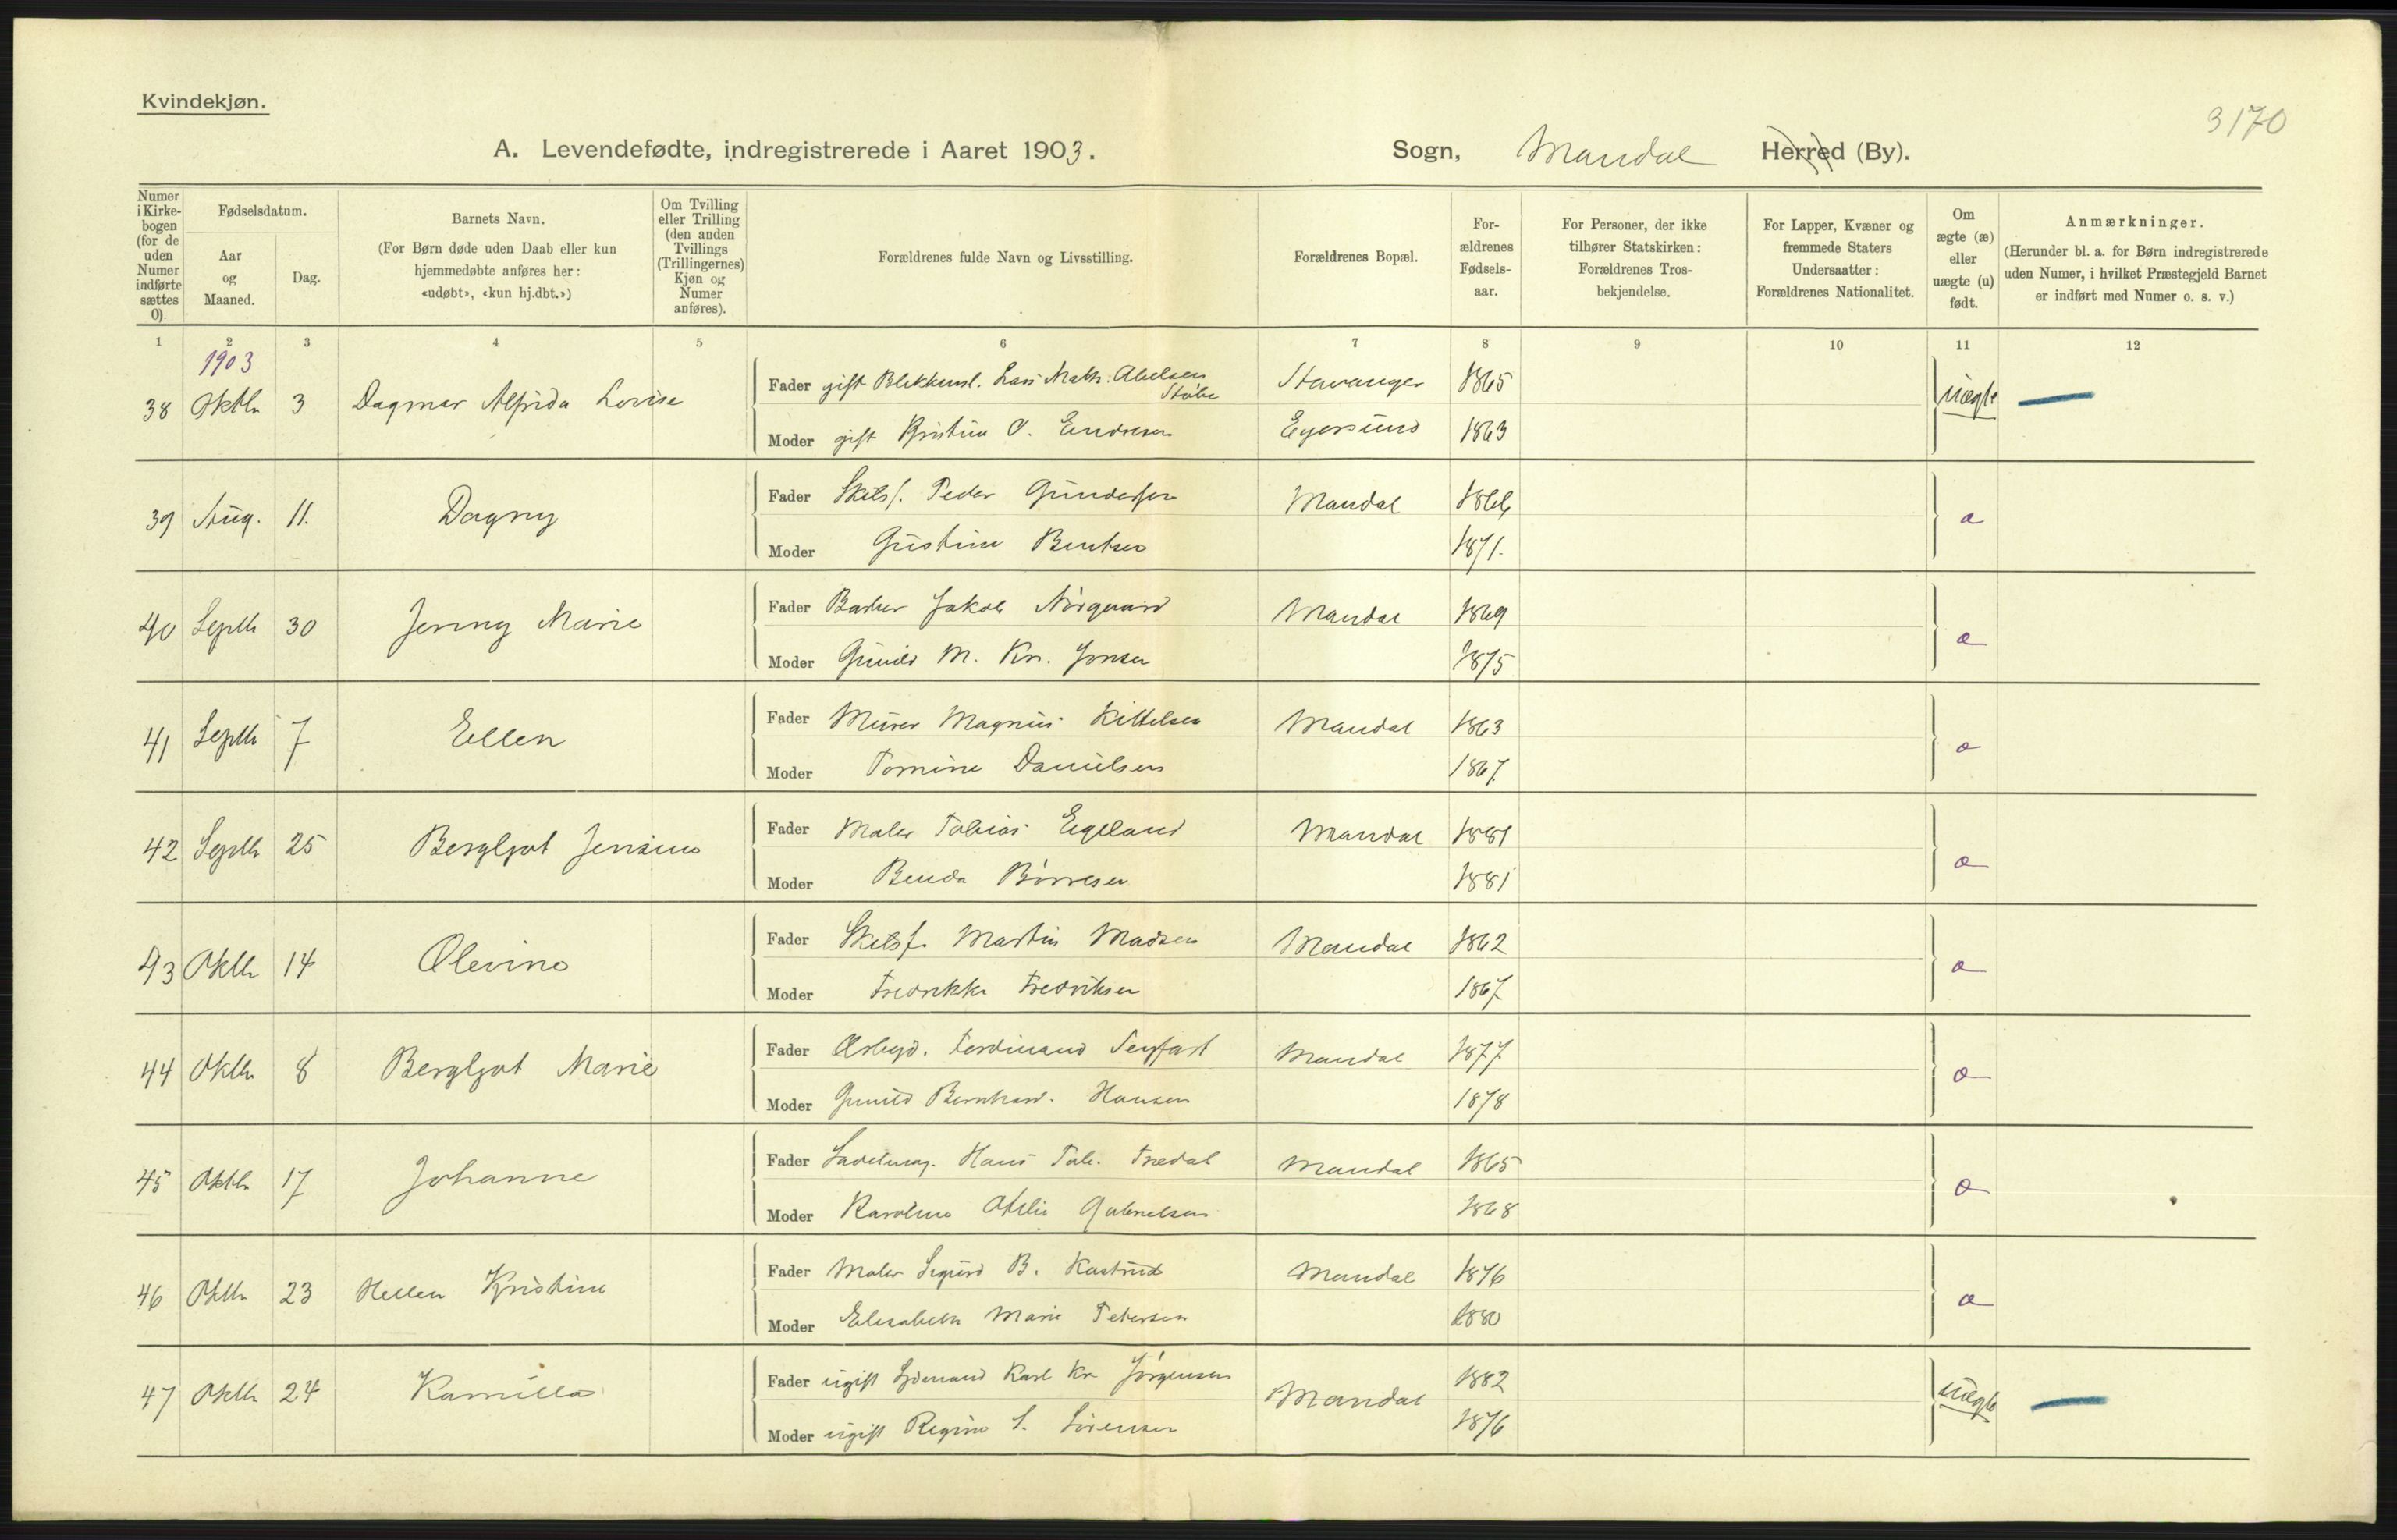 Kvindekjøn.
3170
A. Levendefødte, indregistrerede i Aaret 1903. Sogn, Mandal Herred (By).
Numer i Kirkebogen (for de uden Numer indførte sættes 0).
Fødselsdatum.
Aar og Maaned.
Dag.
Barnets Navn.
(For Børn døde uden Daab eller kun hjemmedøbte anføres her: «udøbt», «kun hj.dbt.»)
Om Tvilling eller Trilling (den anden Tvillings (Trillingernes) Kjøn og Numer anføres).
Forældrenes fulde Navn og Livsstilling.
Forældrenes Bopæl.
Forældrenes Fødselsaar.
For Personer, der ikke tilhører Statskirken: Forældrenes Trosbekjendelse.
For Lapper, Kvæner og fremmede Staters Undersaatter: Forældrenes Nationalitet.
Om ægte (æ) eller uægte (u) født.
Anmærkninger.
(Herunder bl. a. for Børn indregistrerede uden Numer, i hvilket Præstegjeld Barnet er indført med Numer o. s. v.)
1 2 3 4 5 6 7 8 9 10 11 12
1903
38 Oktbr 3 Dagmar Alfrida Lovise Fader gift Lars Math. Abelsen Stavanger 1865 uægte
Moder gift Kristine O. Endresen Egersund 1863
39 Aug. 11. Dagny Fader Peder Gundersen Mandal 1866 æ
Moder Gustine Bentsen 1871.
40 Septb 30 Jenny Marie Fader Barber Jakob Nørgaard Mandal 1869 æ
Moder Gunild M. Kr. Jonsen 1875
41 Septb 7 Ellen Fader Murer Magnus Kittelsen Mandal 1863 æ
Moder Tomine Danielsen 1867
42 Septb 25 Bergljot Jensine Fader Maler Tobias Egeland Mandal 1881 æ
Moder Benda Børresen 1881
43 Oktb 14 Olevine Fader Martin Madsen Mandal 1862 æ
Moder Fredrikke Fredriksen 1867
44 Oktb 8 Bergljot Marie Fader Ferdinand Seyfart Mandal 1877 æ
Moder Gunild Bernhard. Hansen 1878
45 Oktb 17 Johanne Fader Sadelmag. Hans Tob. Mandal 1865 æ
Moder Karoline Otilie Gabrielsen 1868
46 Oktb 23 Hellen Kristine Fader Maler Sigurd B. Kastrud Mandal 1876 æ
Moder Elisabeth Marie Petersen 1880
47 Oktb 24 Kamilla Fader ugift Sjømand Karl Kr. Jørgensen Mandal 1882 uægte
Moder ugift Regine S. Sørensen 1876